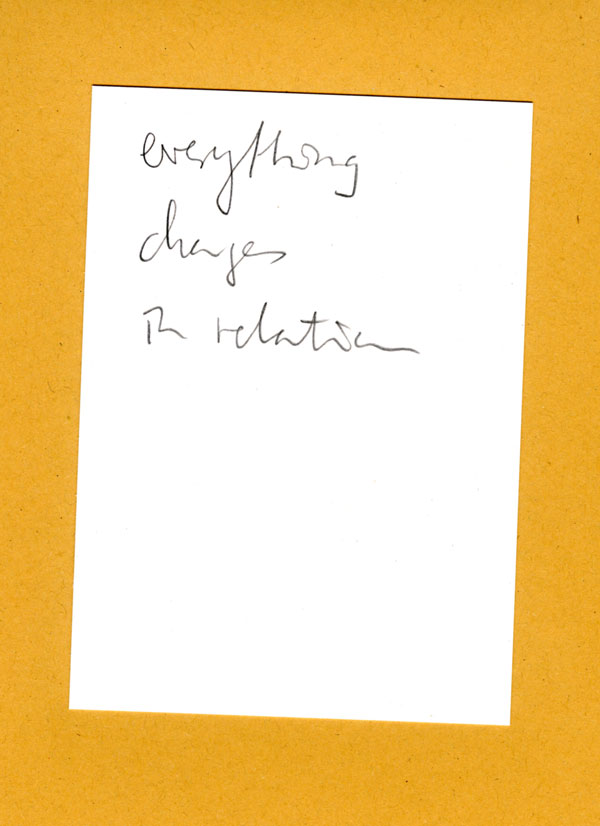 everything
changes
in relation